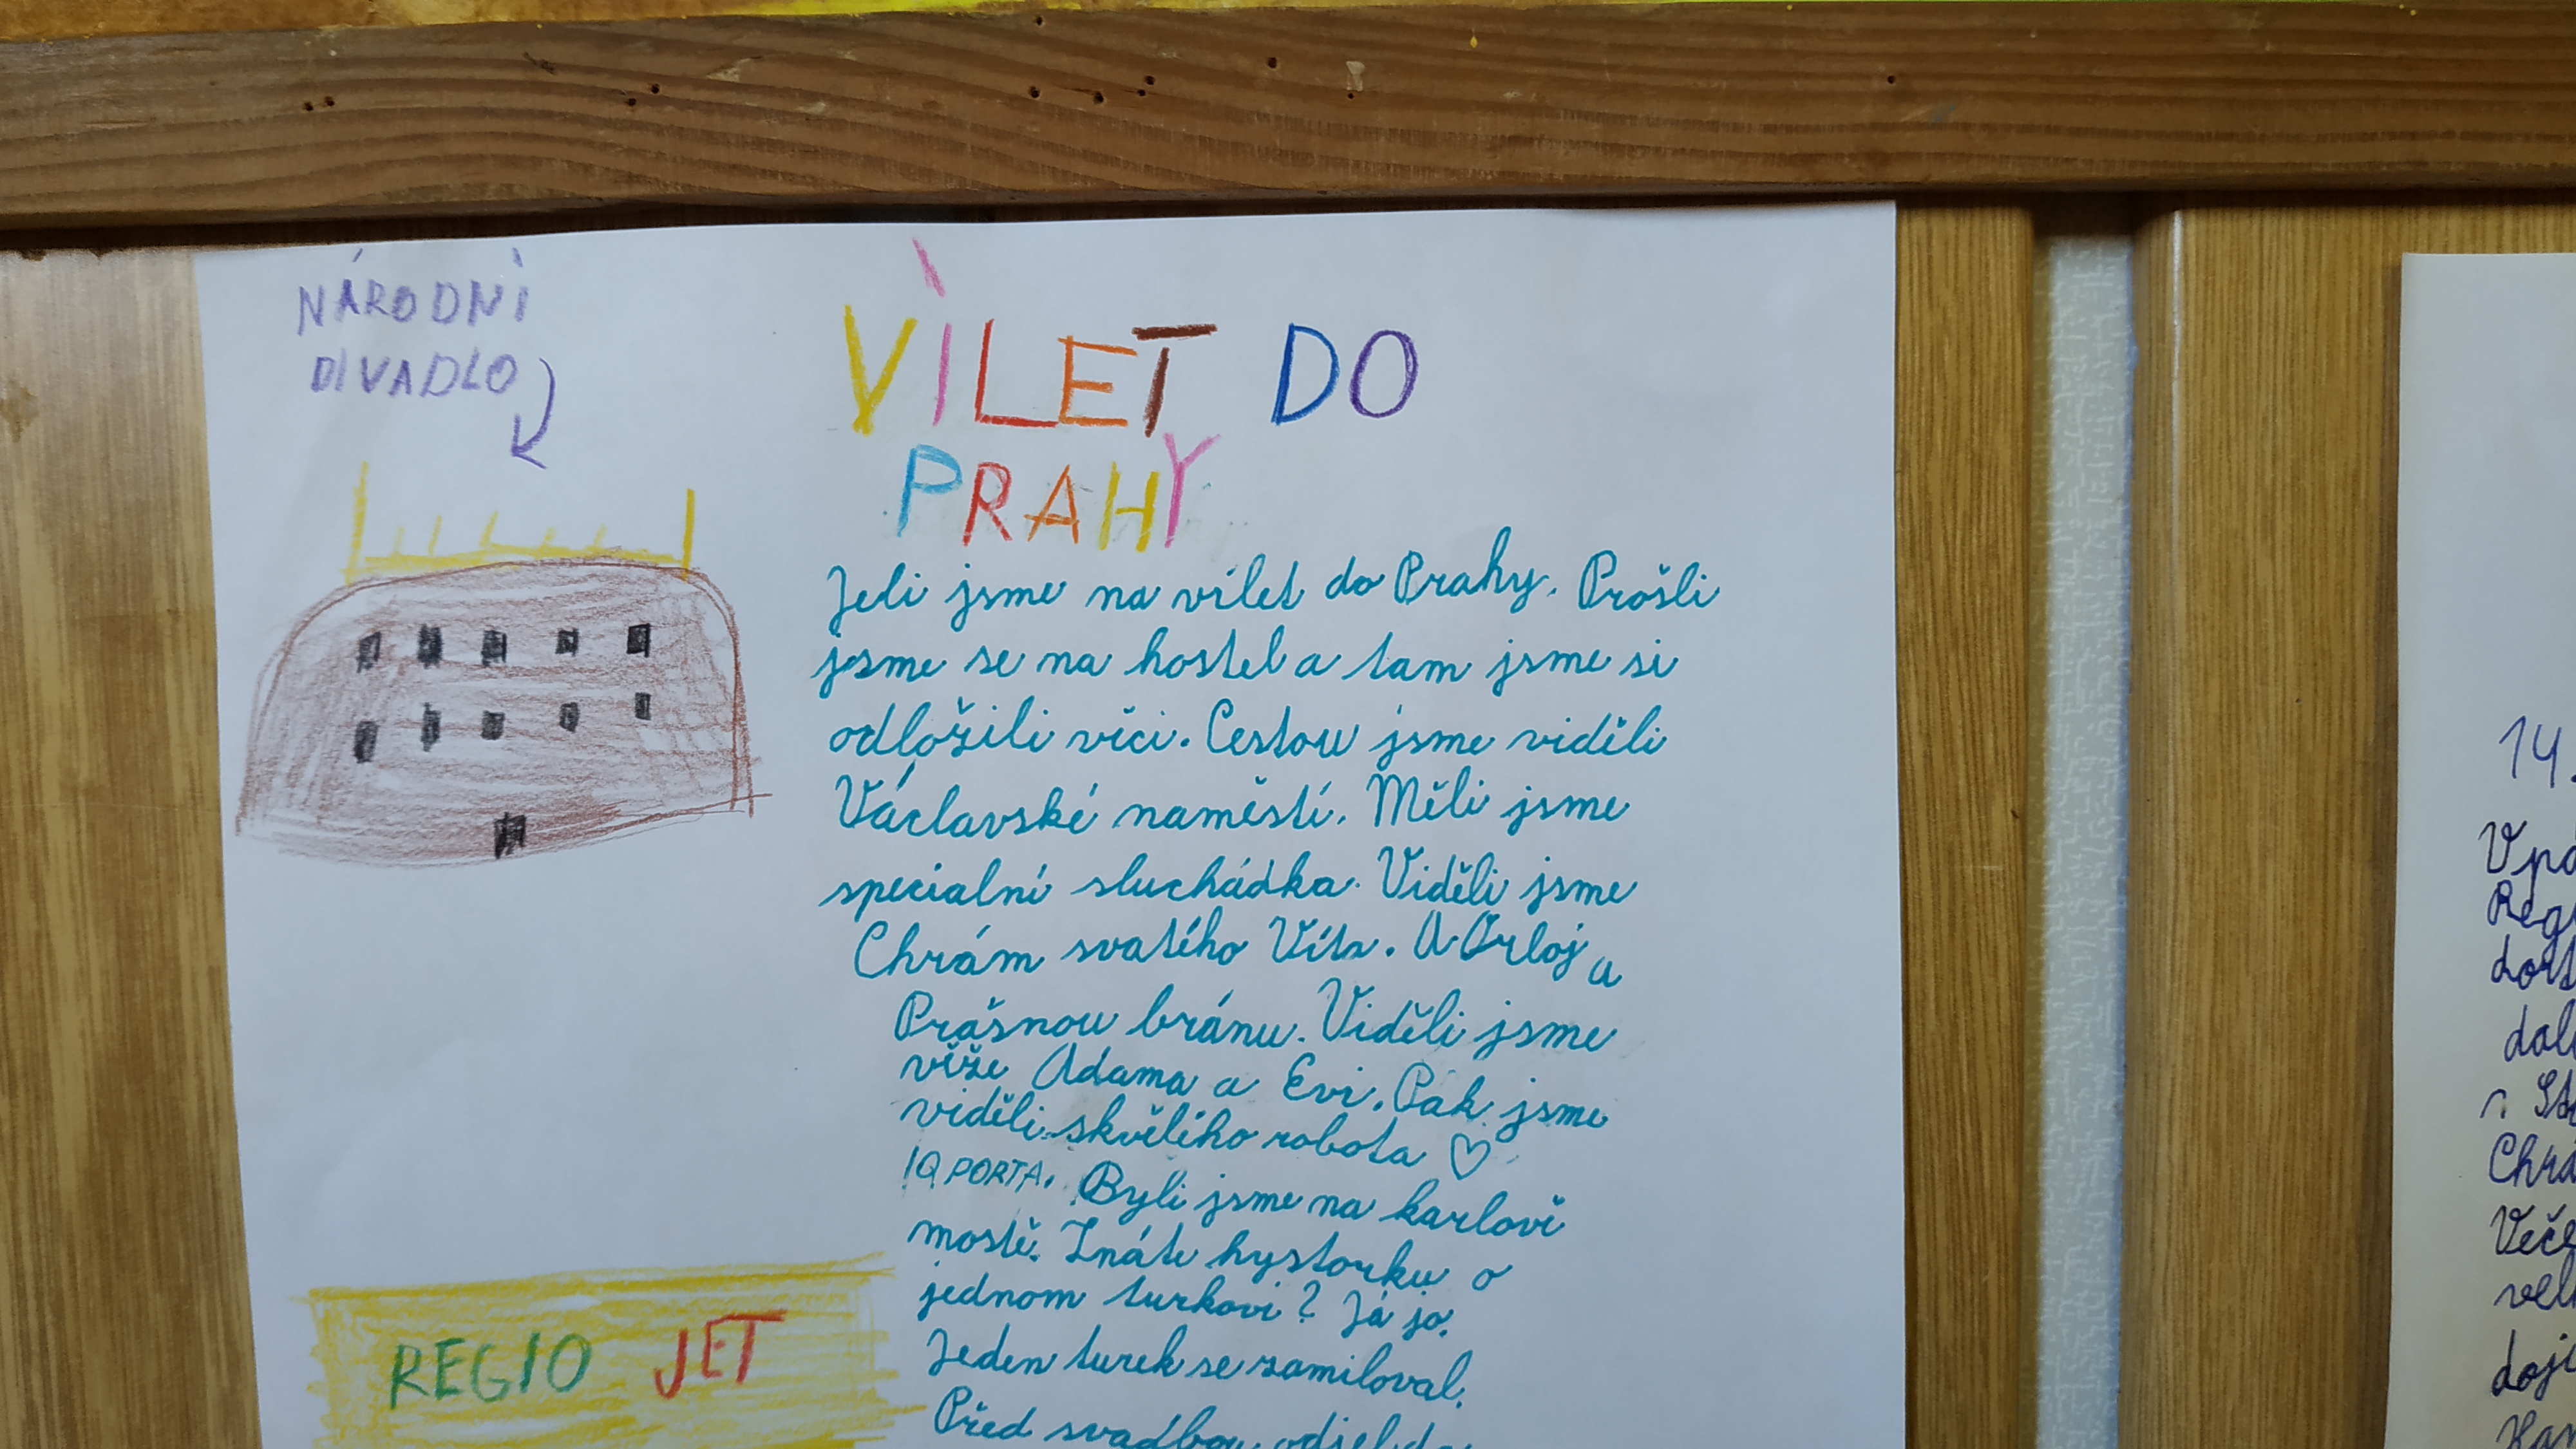 NÁRODNÍ
DIVADLO
VÌLET DO
PRAHY
Jeli jsme na vílet do Prahy. Prošli
jsme se na hostel a tam jsme si
odložili věci. Cestou jsme viděli
Václavské naměstí. Měli jsme
specialní sluchádka. Viděli jsme
Chrám svatého Víta. A Orloj a
Prašnou bránu. Viděli jsme
věže Adama a Evi. Pak jsme
viděli skvělího robota ♡
IQ PORTA. Byli jsme na karlově
mostě. Znáte hystorku o
jednom turkovi? Já jo.
Jeden turek se zamiloval.
Před svadbou odjel do
REGIO JET
14.
Chrá
Veče